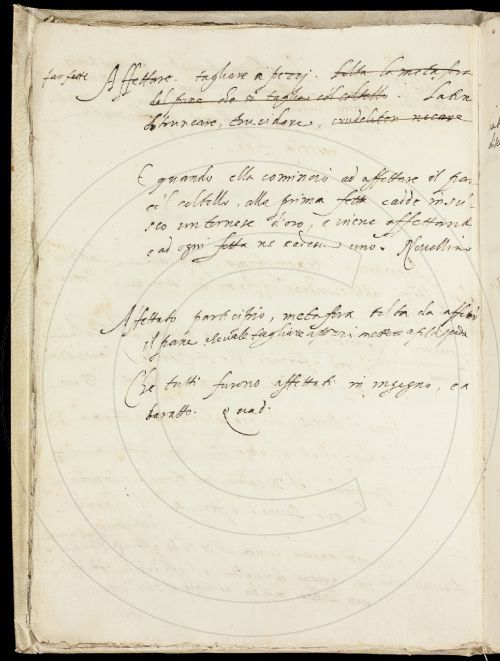 far fette Affettare. tagliare à pezzi. tolta la metafora
dal pane che si taglia col coltello. Latin
obtruncare, trucidare, crudeliter necare
E quando ella cominciò ad affettare il pane
il coltello, alla prima fetta cadde in sul
un tornese d'oro, e viene affettand
e ad ogni fetta ne cadeva uno. Novellino
Affettato participio, metafora tolta da affettar
il pane che vale tagliare a pezzi mettere a fil di spada
Che tutti furono affettati in ingegno, e a
baratto. Quad.